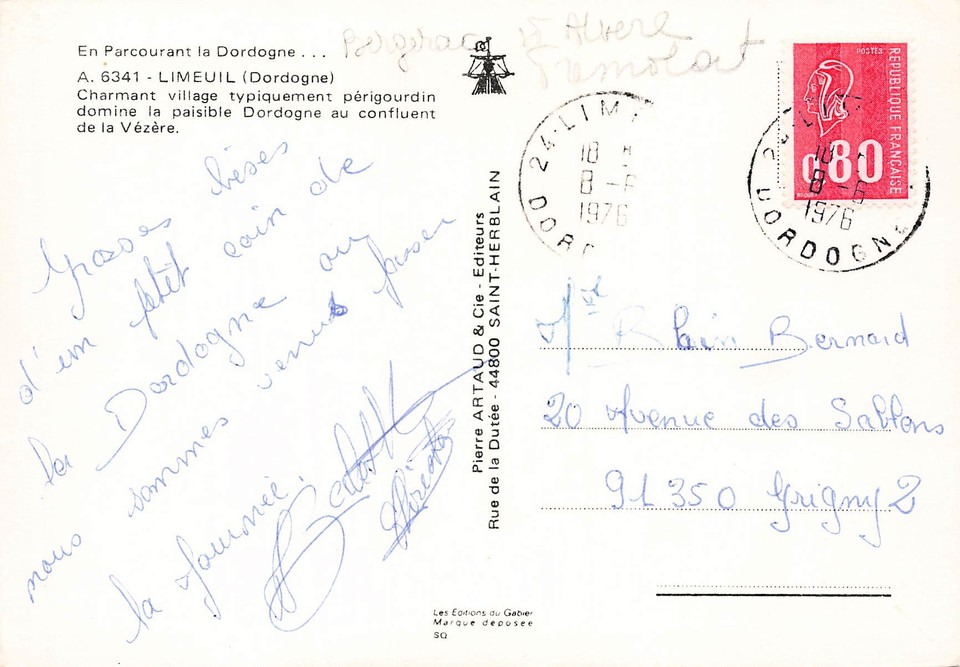 En Parcourant la Dordogne . . .
A. 6341 - LIMEUIL (Dordogne)
Charmant village typiquement périgourdin
domine la paisible Dordogne au confluent
de la Vézère.
Bergerac St Alvere
Tremolat
Grosses bises
d'un petit coin de
la Dordogne ou
nous sommes venus passer
la journée.
Pierre ARTAUD & Cie - Editeurs
Rue de la Dutée - 44800 SAINT-HERBLAIN
24-LIM
18
8-6
1976
DOR
POSTES
REPUBLIQUE FRANÇAISE
0,80
18
8-6
1976
DORDOGNE
Bernard
20 Avenue des Sablons
91350 Grigny 2
Les Editions du Gabier
Marque déposée
SQ